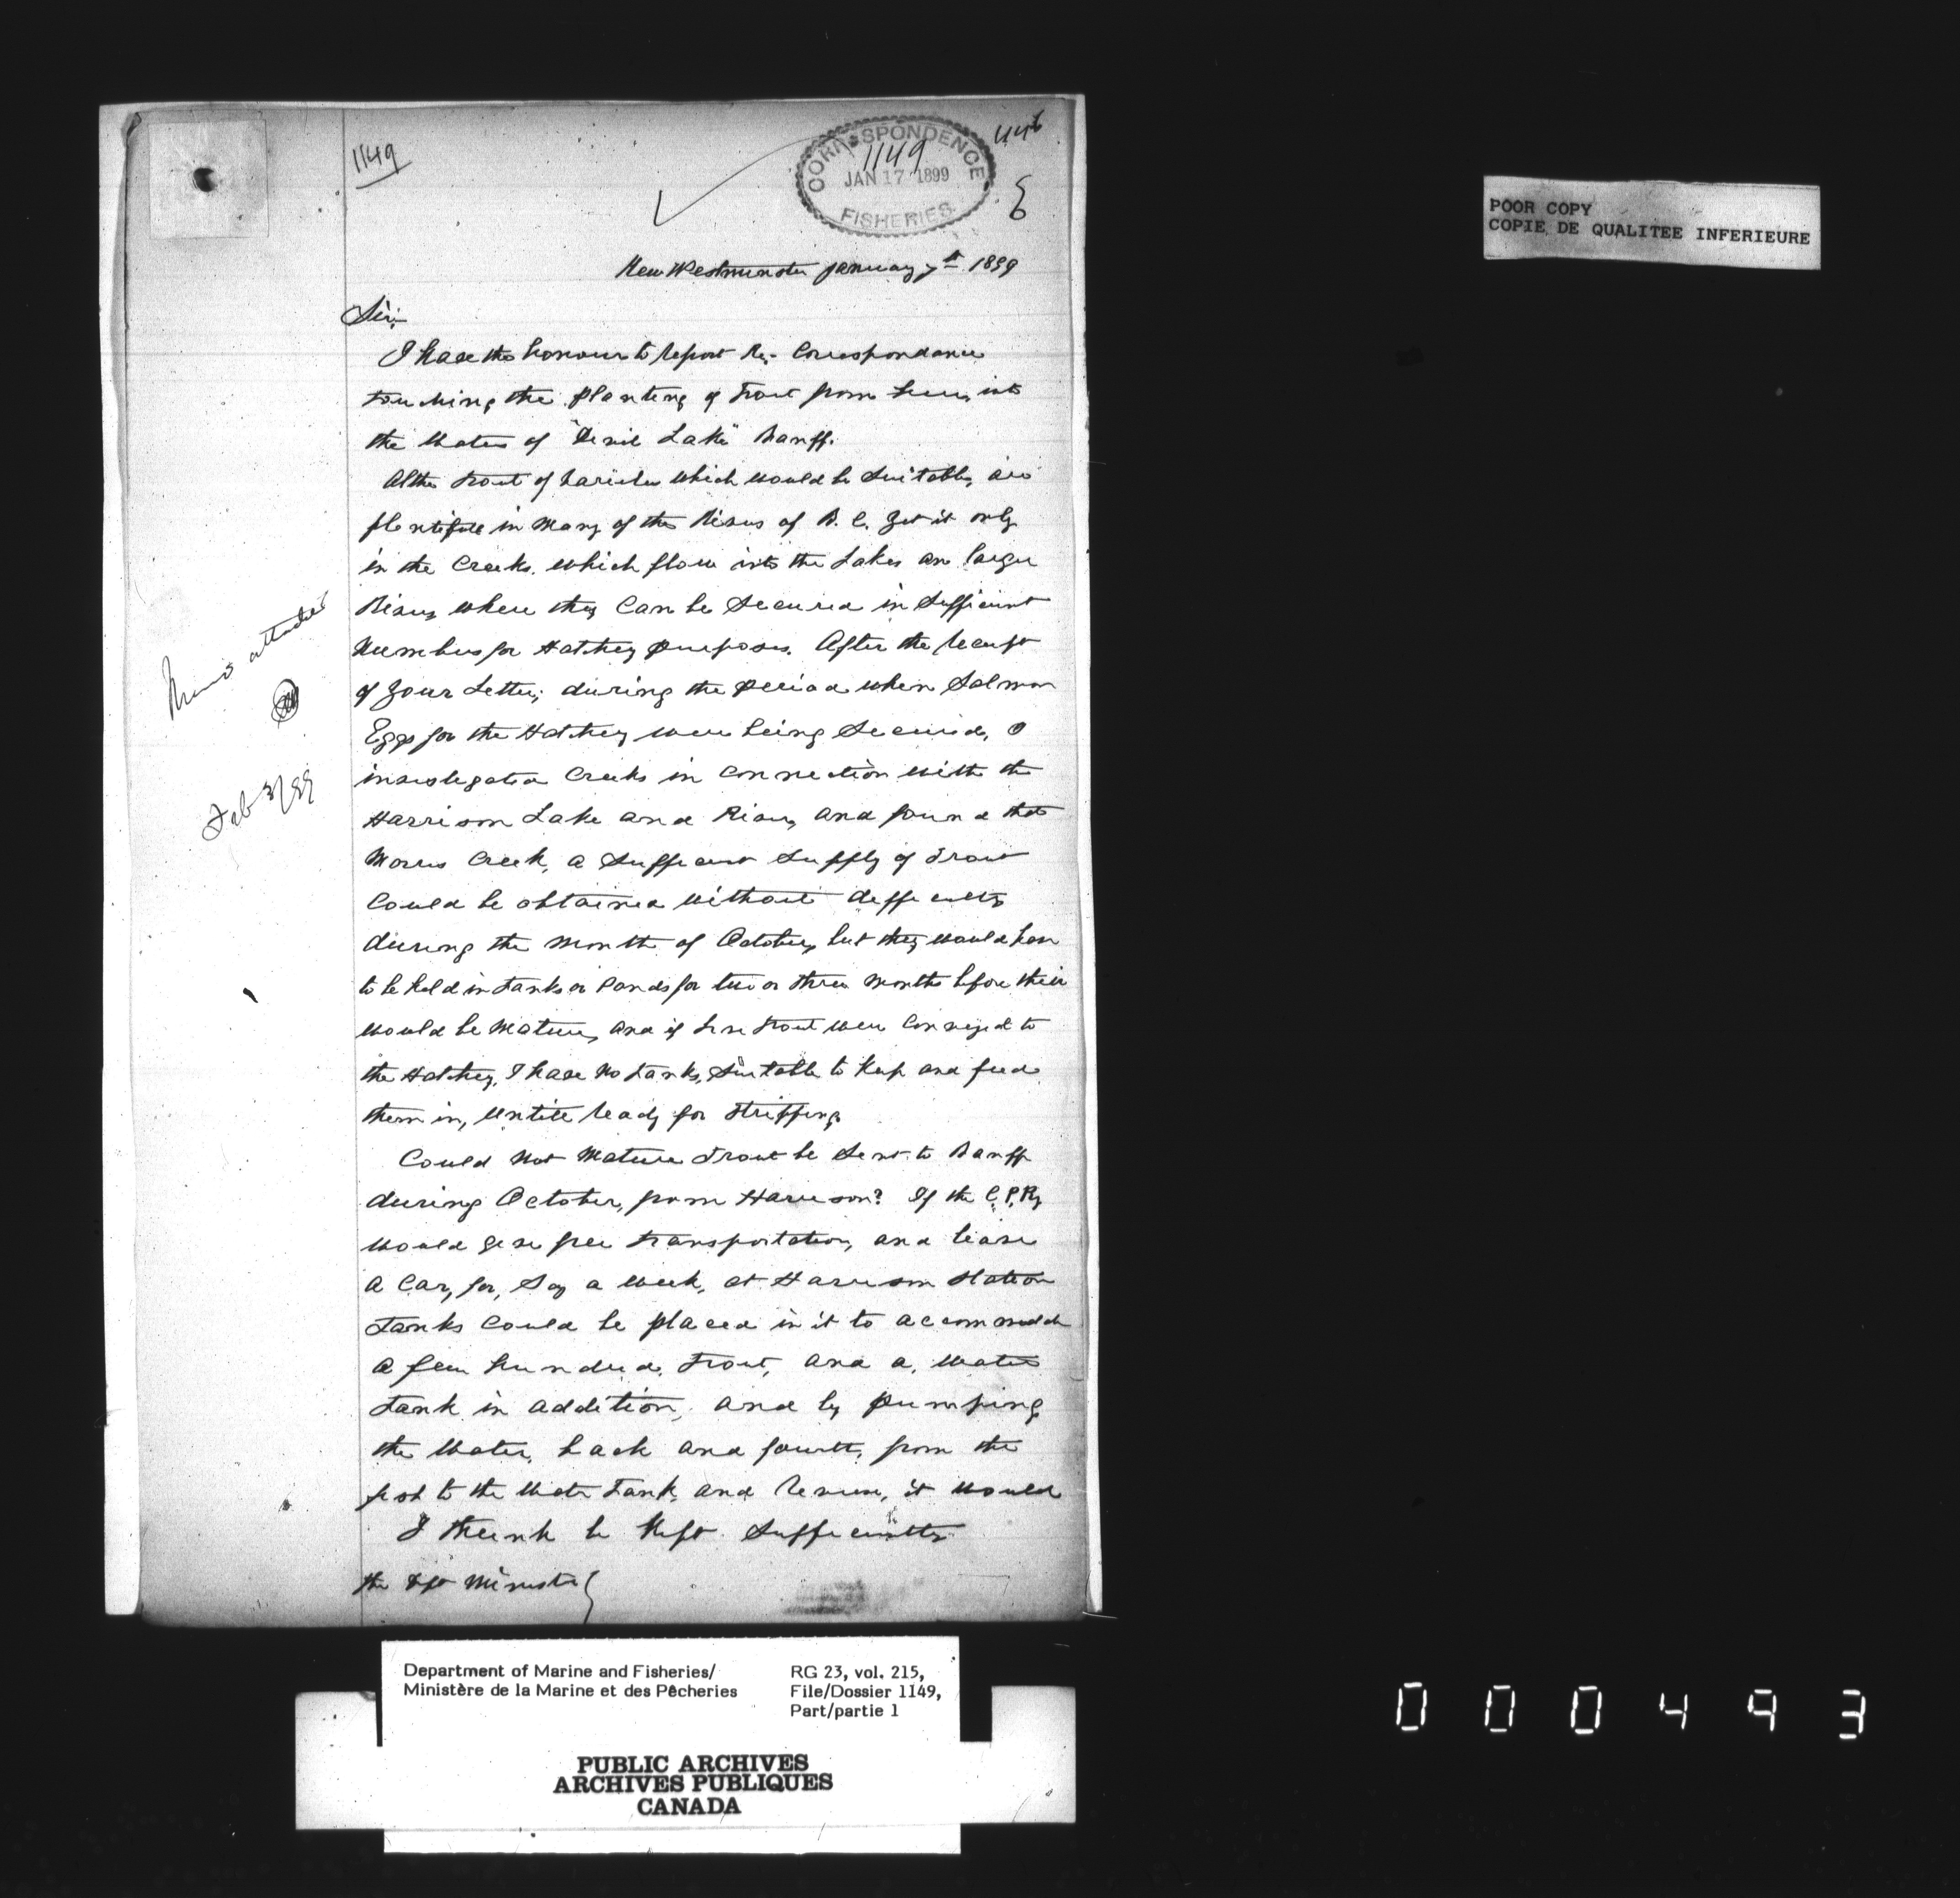 1149
446
CORRESPONDENCE
1149
JAN 17 1899
FISHERIES
New Westminster January 7th 1899
Sir:-
I have the honour to report Re:- Correspondance
touching the planting of Trout from here, into
the Water of "Devil Lake" Banff.
Altho Trout of Varieties which would be Suitable, are
plentiful in Many of the Rivers of B. C. yet it only
in the Creeks. which flow into the Lakes an larger
Rivers, where they Can be Secured in Sufficient
Numbers for Hatchery purposes. After the receipt
of your Letter; during the period when Salmon
Eggs for the Hatchery were being Secured, I
investigated Creeks in Connection with the
Harrison Lake and River, and found that
Morris Creek, a Sufficient Supply of Trout
Could be obtained without difficulty
during the Month of October, but they would have
to be held in tanks or Ponds for two or three Months before their
would be Mature, and if live trout were Conveyed to
the Hatchery, I have No tanks, Suitable to Keep and feed
them in, untill ready for Stripping.
Could Not Mature Trout be Sent to Banff
during October, from Harrison? If the C.P.Ry
would give free transportation, and leave
a Car, for, Say a week, at Harrison Station
Tanks Could be placed in it to accommodate
a few hundred, trout, and a, water
tank in addition, and by pumping
the Water, back and fourth, from the
fish to the Water tank, and reverse, it would
I think be Kept Sufficiently
the Dpt Minister
Memo attached
Feb 3/99
POOR COPY
COPIE DE QUALITEE INFERIEURE
Department of Marine and Fisheries/
Ministère de la Marine et des Pêcheries
RG 23, vol. 215,
File/Dossier 1149,
Part/partie 1
PUBLIC ARCHIVES
ARCHIVES PUBLIQUES
CANADA
000493